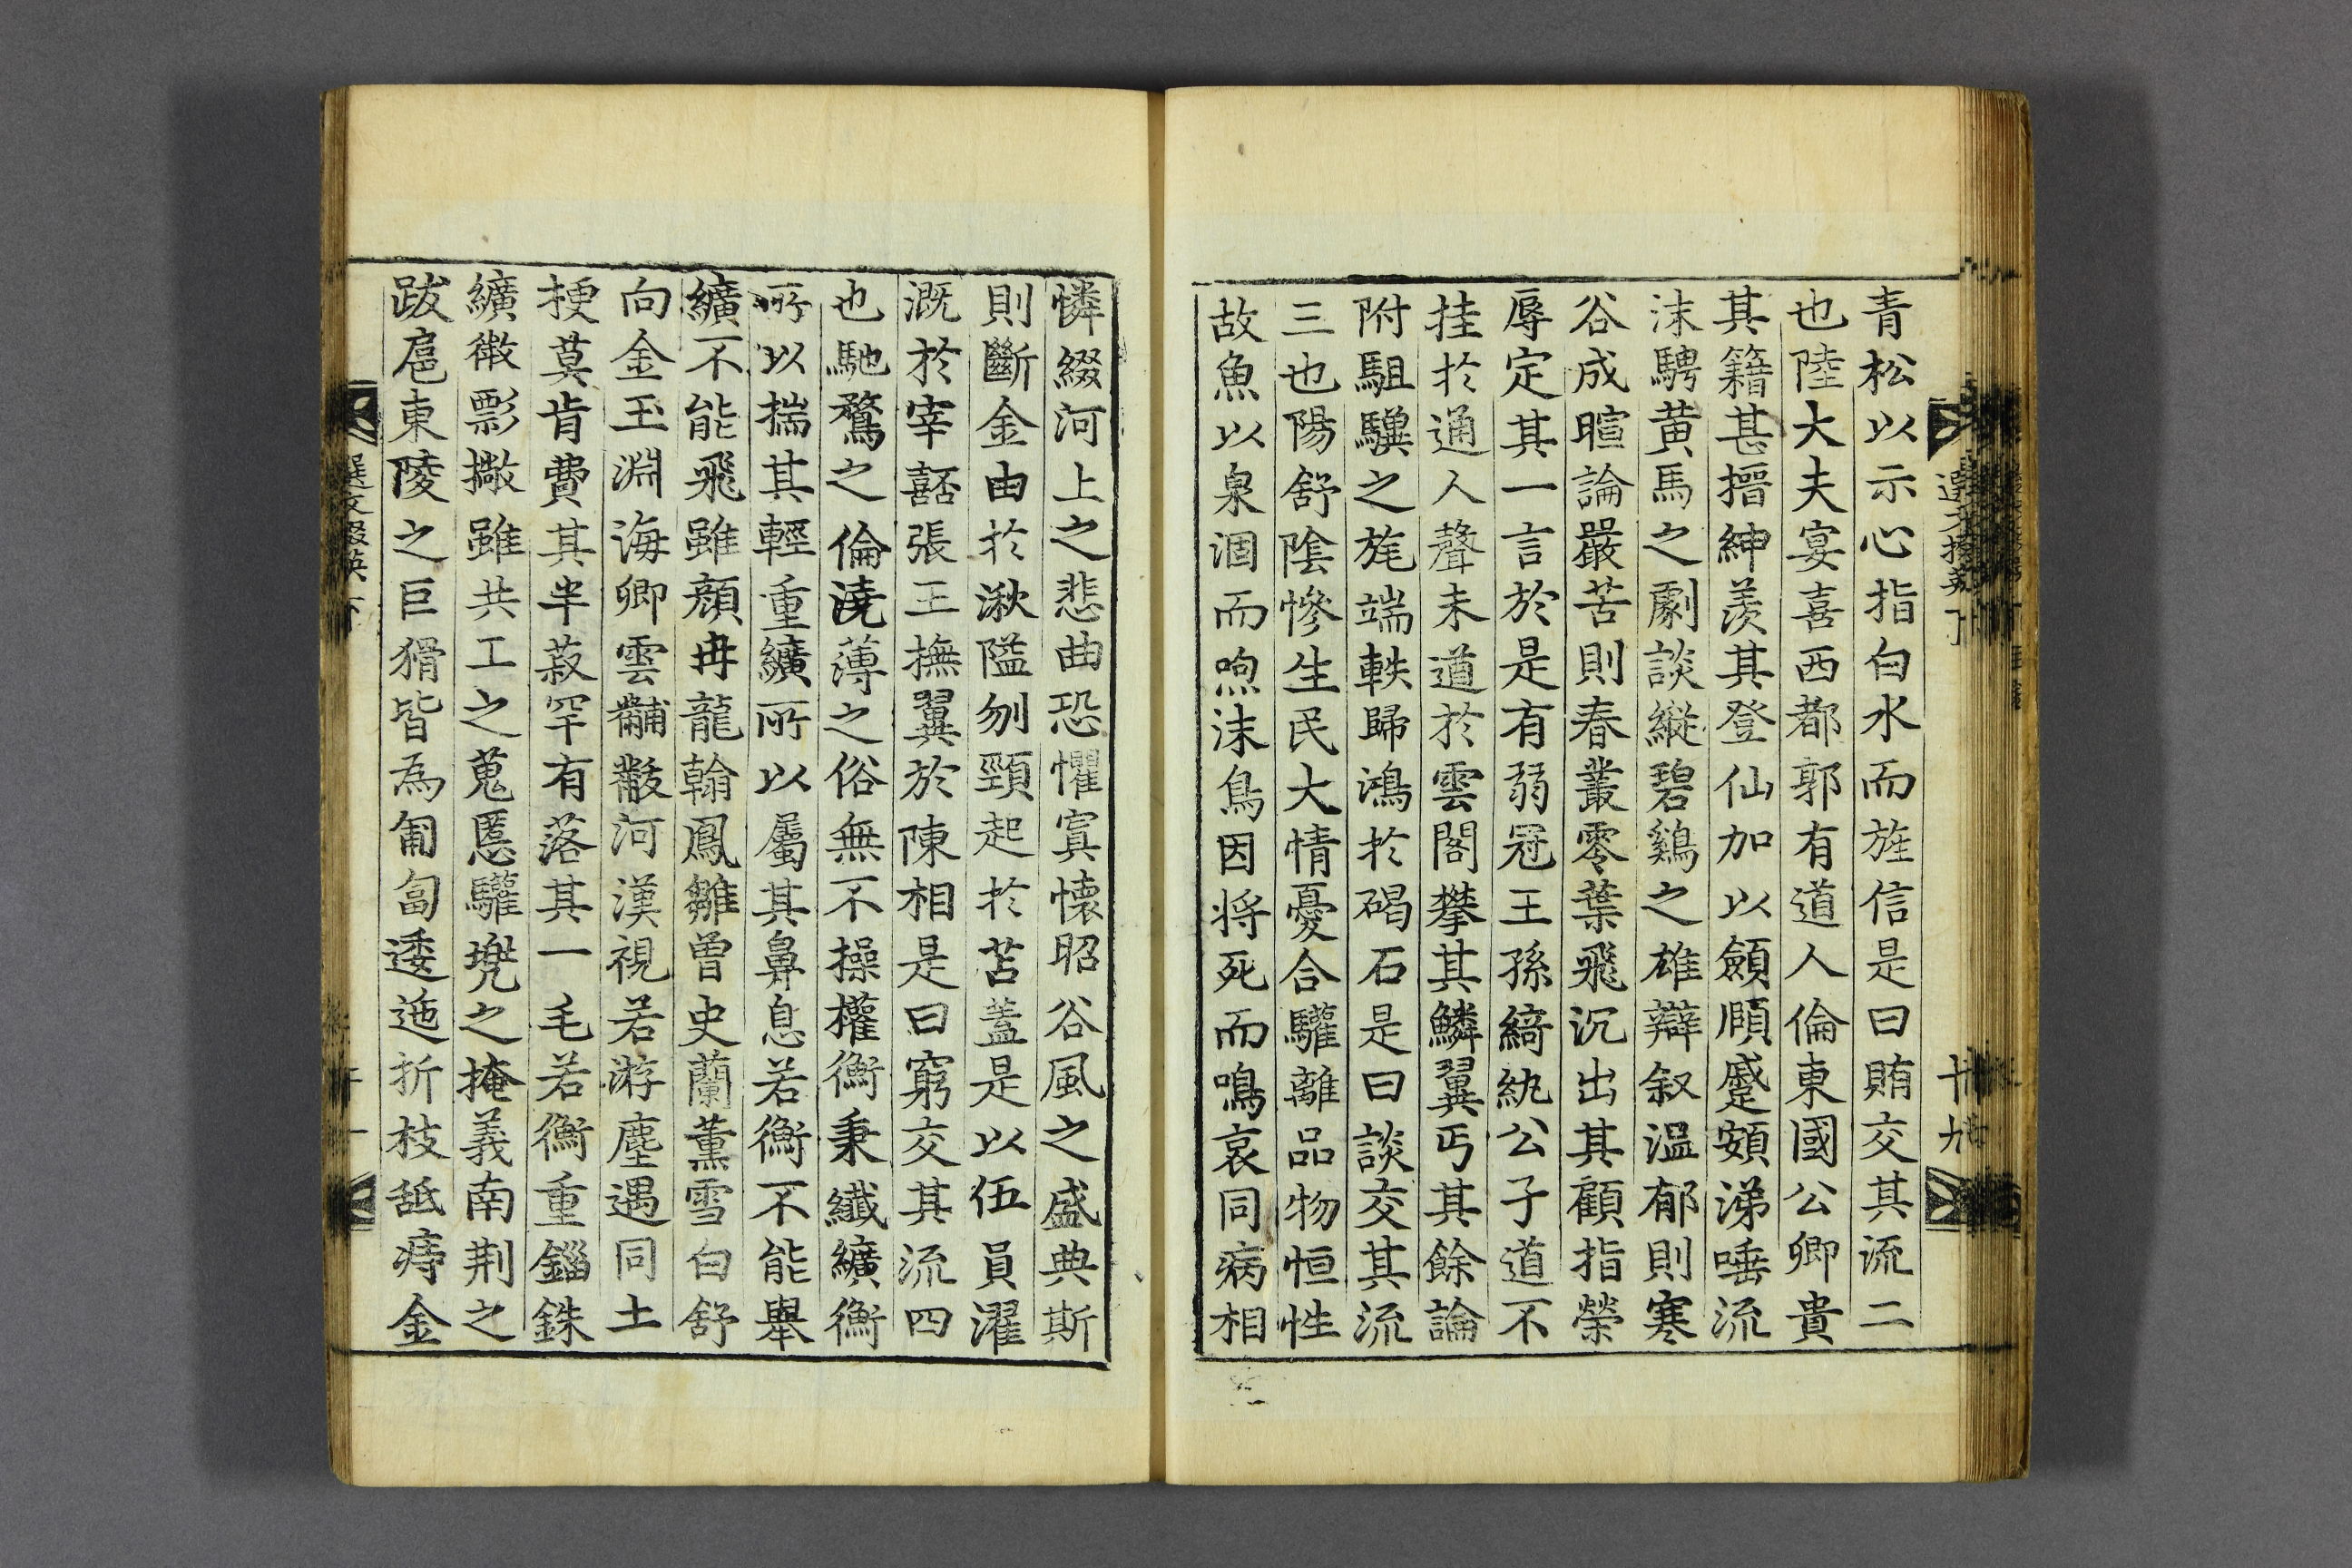 青松以示心指白水而旌信是曰賄交其流二
也陸大夫宴喜西都郭有道人倫東國公卿貴
其籍甚搢紳羨其登仙加以顩頤蹙頞涕唾流
沫騁黄馬之劇談縱碧鷄之雄辯叙温郁則寒
谷成暄論嚴苦則春叢零葉飛沉出其顧指榮
辱定其一言於是有弱冠王孫綺紈公子道不
挂於通人聲未遒於雲閣攀其鱗翼丐其餘論
附駔驥之旄端軼歸鴻於碣石是曰談交其流
三也陽舒陰慘生民大情憂合驩離品物恒性
故魚以泉涸而呴沫鳥因将死而鳴哀同病相
憐綴河上之悲曲恐懼寘懷昭谷風之盛典斯
則斷金由於湫隘刎頸起於苫蓋是以伍員濯
溉於宰嚭張王撫翼於陳相是曰窮交其流四
也馳騖之倫澆薄之俗無不操權衡秉纖纊衡
所以揣其輕重纊所以屬其鼻息若衡不能舉
纊不能飛雖顔冉龍翰鳳雛曾史蘭薰雪白舒
向金玉淵海卿雲黼黻河漢視若游塵遇同土
梗莫肯費其半菽罕有落其一毛若衡重錙銖
纊微彯撇雖共工之蒐慝驩兠之掩義南荆之
跋扈東陵之巨猾皆為匍匐逶迤折枝舐痔金
選文掇英 下
十九